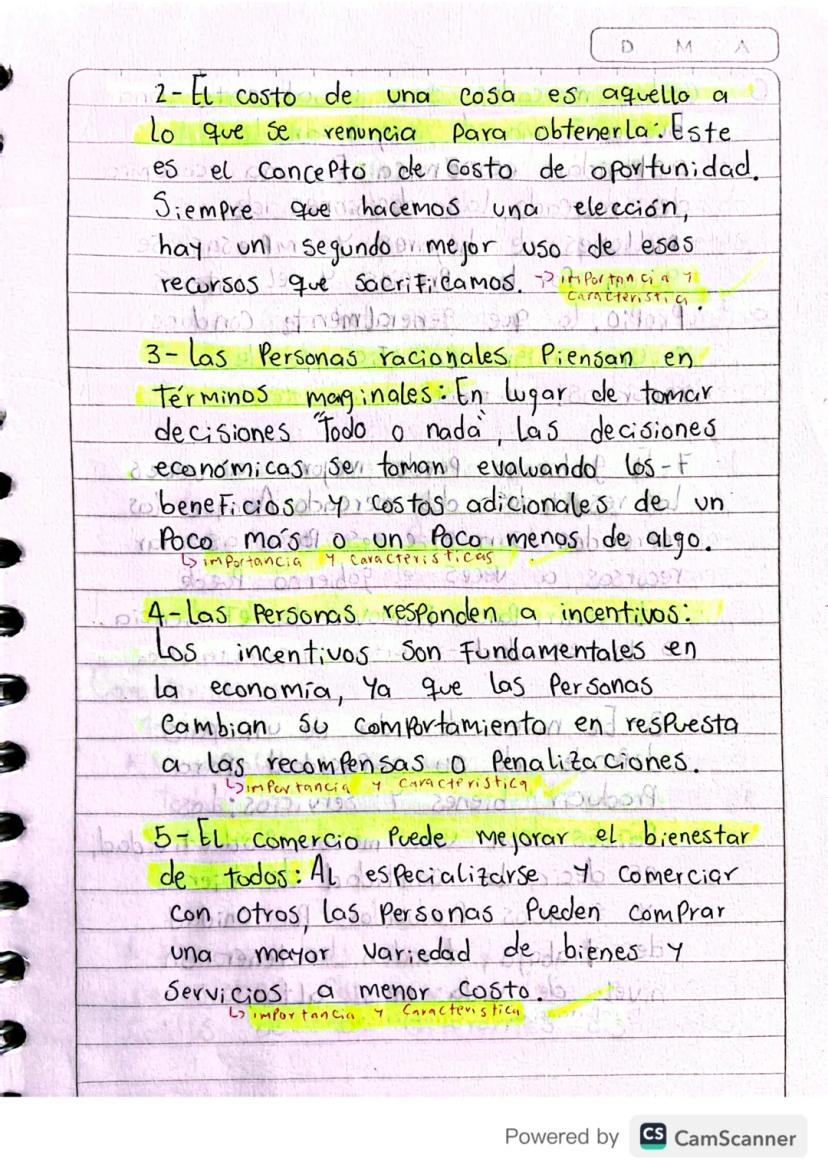 D M A
2- El costo de una cosa es aquello a
lo que se renuncia para obtenerla: Este
es el concepto de costo de oportunidad.
Siempre que hacemos una elección,
hay un segundo mejor uso de esos
recursos que sacrificamos. → importancia y
característica.
3- las Personas racionales Piensan en
términos marginales: En lugar de tomar
decisiones "Todo o nada", las decisiones
económicas se toman evaluando los
beneficios y costos adicionales de un
Poco más o un Poco menos de algo.
↳ importancia y características
4- Las Personas responden a incentivos:
Los incentivos son fundamentales en
la economía, ya que las Personas
cambian su comportamiento en respuesta
a las recompensas o Penalizaciones.
↳ importancia y característica
5- El comercio Puede mejorar el bienestar
de todos: Al especializarse y comerciar
con otros, las Personas Pueden comprar
una mayor variedad de bienes y
Servicios a menor costo.
↳ importancia y característica
Powered by CS CamScanner